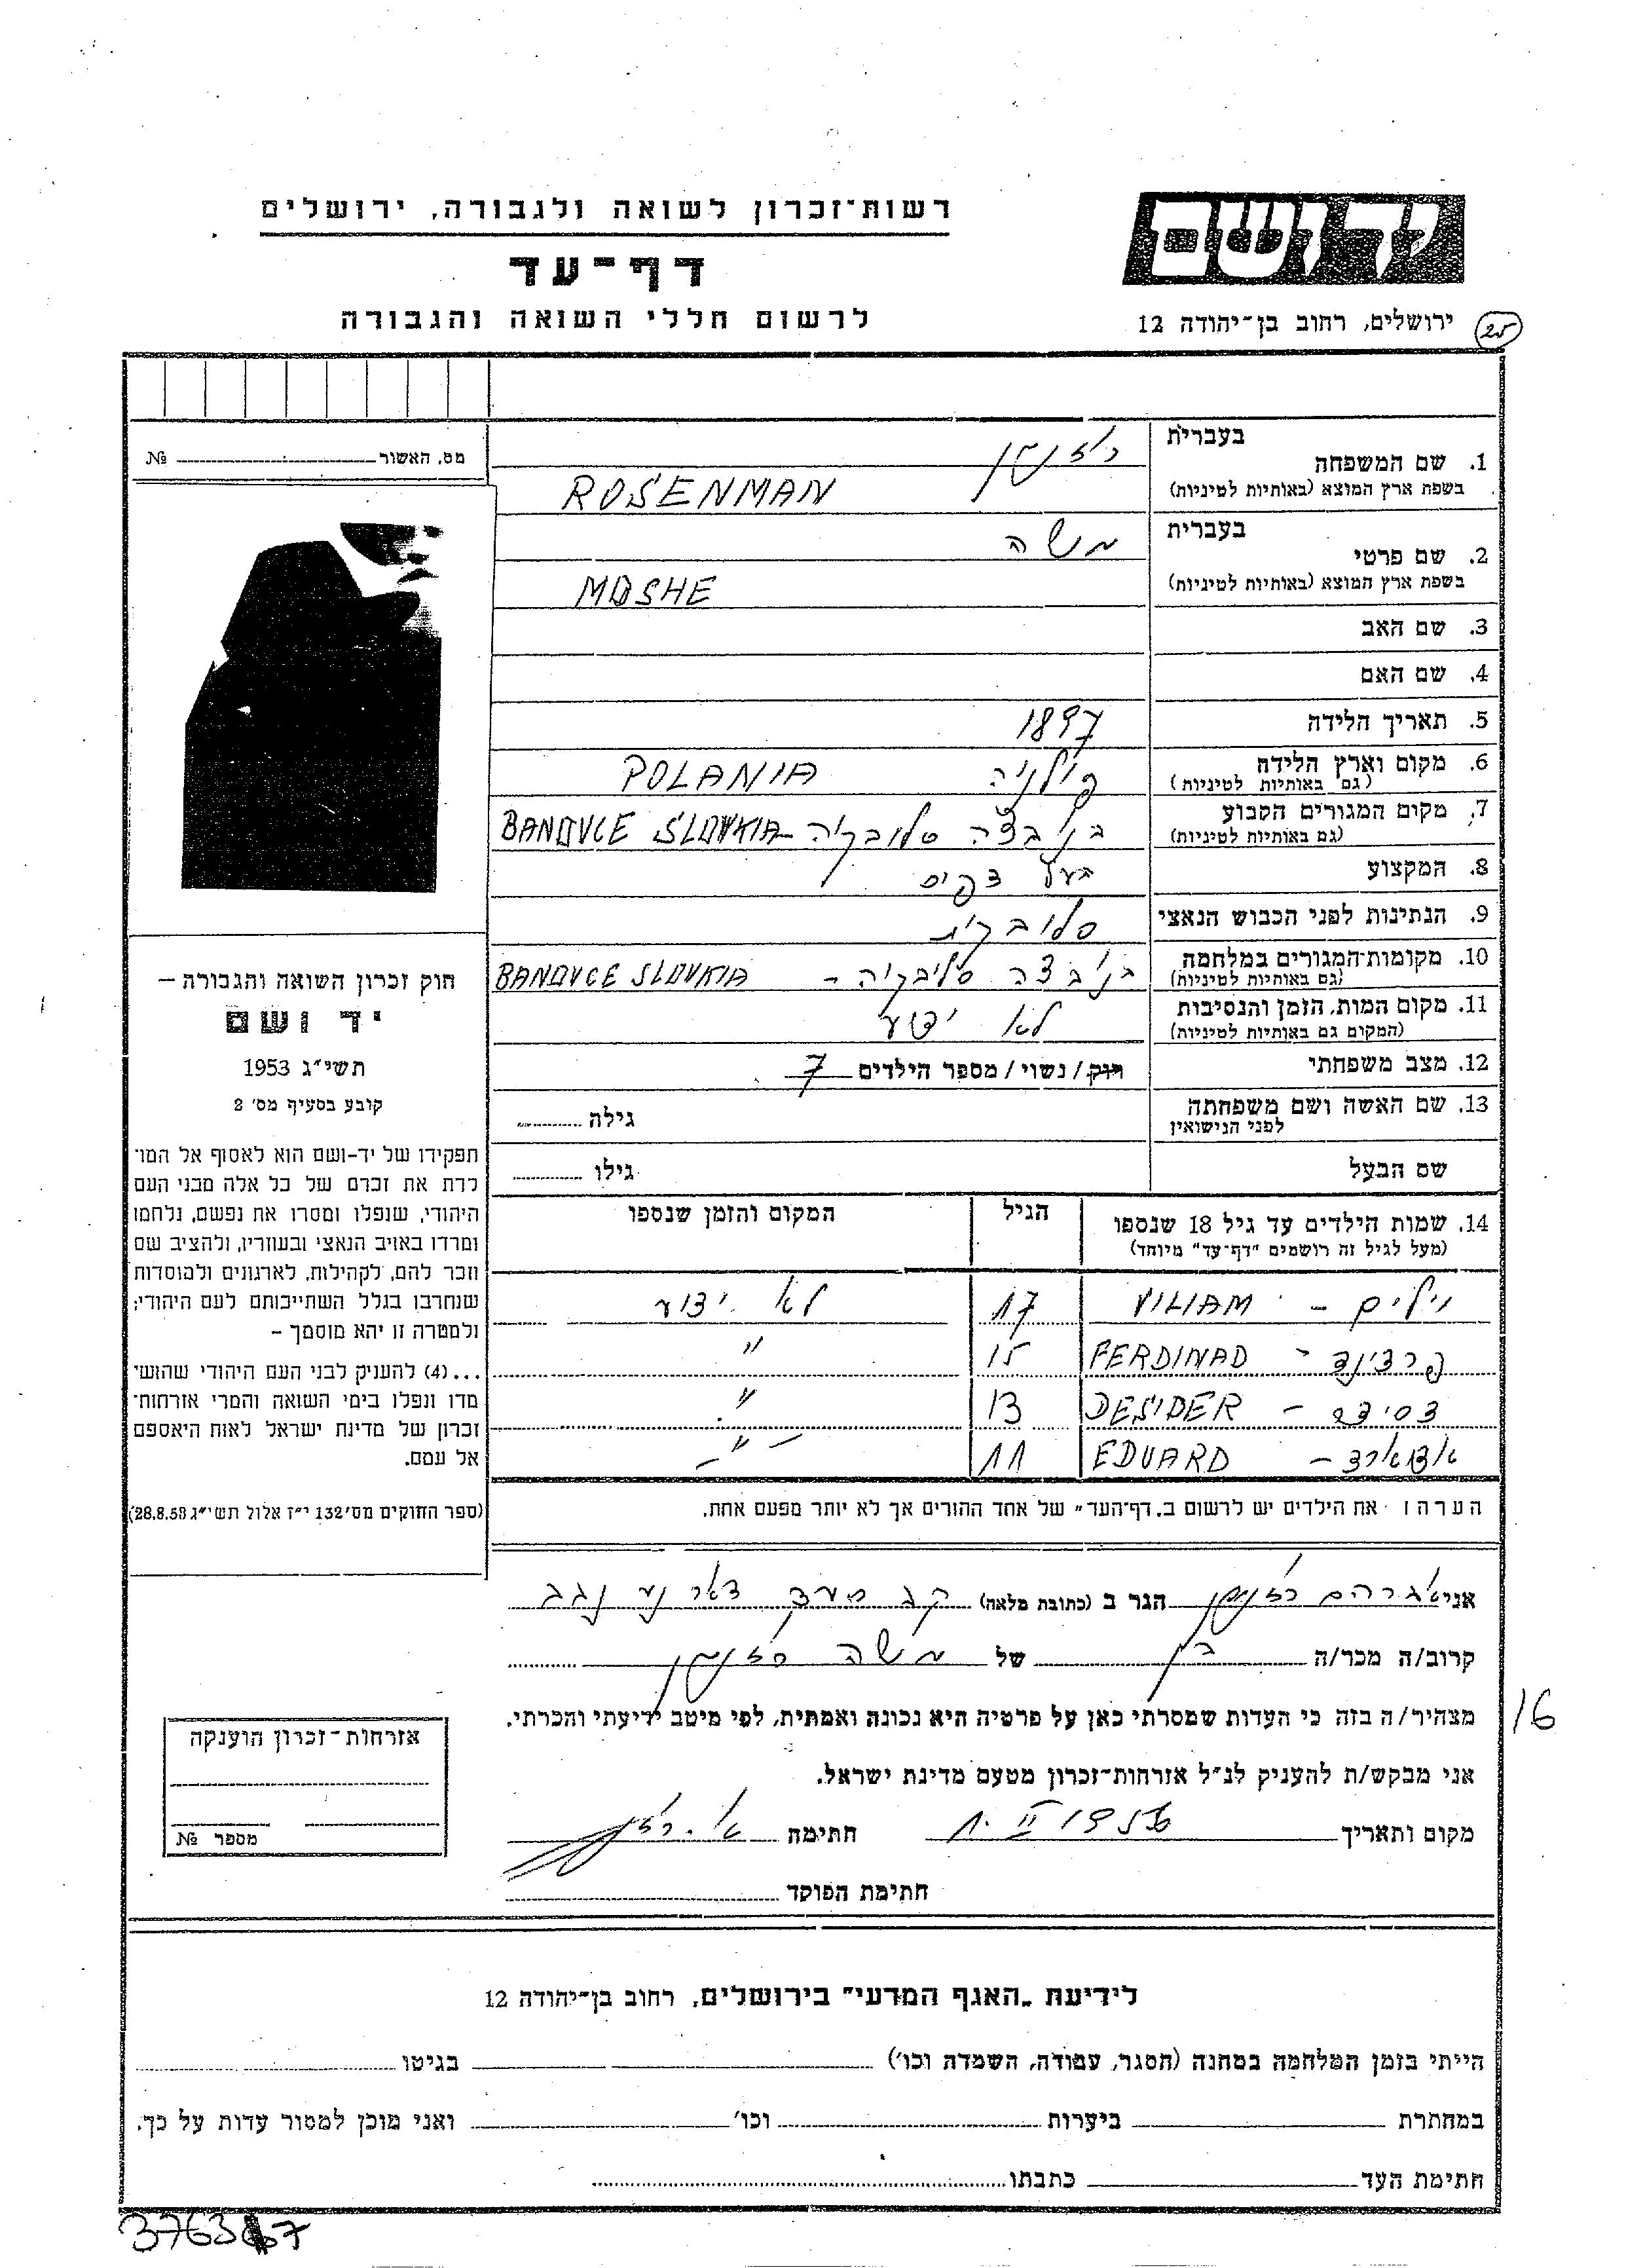 רשות־זכרון לשואה ולגבורה, ירושלים
יד ושם
דף־עד
לרשום חללי השואה והגבורה
ירושלים, רחוב בן־יהודה 12
25
מס. האשור № 
בעברית
1. שם המשפחה רוזנמן
בשפת ארץ המוצא (באותיות לטיניות) ROSENMAN
בעברית
2. שם פרטי משה
בשפת ארץ המוצא (באותיות לטיניות) MOSHE
3. שם האב
4. שם האם
5. תאריך הלידה 1897
6. מקום וארץ הלידה פולניה POLANIA
(גם באותיות לטיניות)
7. מקום המגורים הקבוע בנובצה סלובקיה BANOVCE SLOVKIA
(גם באותיות לטיניות)
8. המקצוע בעל
9. הנתינות לפני הכבוש הנאצי סלובקית
10. מקומות־המגורים במלחמה בנובצה סלובקיה - BANOVCE SLOVKIA
(גם באותיות לטיניות)
11. מקום המות, הזמן והנסיבות לא ידוע
(המקום גם באותיות לטיניות)
12. מצב משפחתי רווק/נשוי/מספר הילדים 7
13. שם האשה ושם משפחתה גילה
לפני הנישואין
שם הבעל גילו
14. שמות הילדים עד גיל 18 שנספו הגיל המקום והזמן שנספו
(מעל לגיל זה רושמים "דף־עד" מיוחד)
וילים - VILIAM 17 לא ידוע
פרדינד - FERDINAD 15 "
דסידר - DESIDER 13 "
אדוארד - EDUARD 11 - " -
הערה: את הילדים יש לרשום ב„דף־העד" של אחד ההורים אך לא יותר מפעם אחת.
חוק זכרון השואה והגבורה —
יד ושם
תשי"ג 1953
קובע בסעיף מס' 2
תפקידו של יד-ושם הוא לאסוף אל המו־
לדת את זכרם של כל אלה מבני העם
היהודי, שנפלו ומסרו את נפשם, נלחמו
ומרדו באויב הנאצי ובעוזריו, ולהציב שם
וזכר להם, לקהילות, לארגונים ולמוסדות
שנחרבו בגלל השתייכותם לעם היהודי;
ולמטרה זו יהא מוסמך —
...(4) להעניק לבני העם היהודי שהוש־
מדו ונפלו בימי השואה והמרי אזרחות־
זכרון של מדינת ישראל לאות היאספם
אל עמם.
(ספר החוקים מס' 132 י"ז אלול תשי"ג 28.8.53)
אני אברהם רוזנמן הגר ב (כתובת מלאה) דאר נע נגב
קרוב/ה מכר/ה בן של משה רוזנמן
מצהיר/ה בזה כי העדות שמסרתי כאן על פרטיה היא נכונה ואמתית, לפי מיטב ידיעתי והכרתי.
16
אני מבקש/ת להעניק לנ"ל אזרחות־זכרון מטעם מדינת ישראל.
מקום ותאריך חתימה
חתימת הפוקד
אזרחות־זכרון הוענקה
מספר №
לידיעת „האגף המדעי" בירושלים, רחוב בן־יהודה 12
הייתי בזמן המלחמה במחנה (הסגר, עבודה, השמדה וכו') בגיטו
במחתרת ביערות וכו' ואני מוכן למסור עדות על כך.
חתימת העד כתבתו